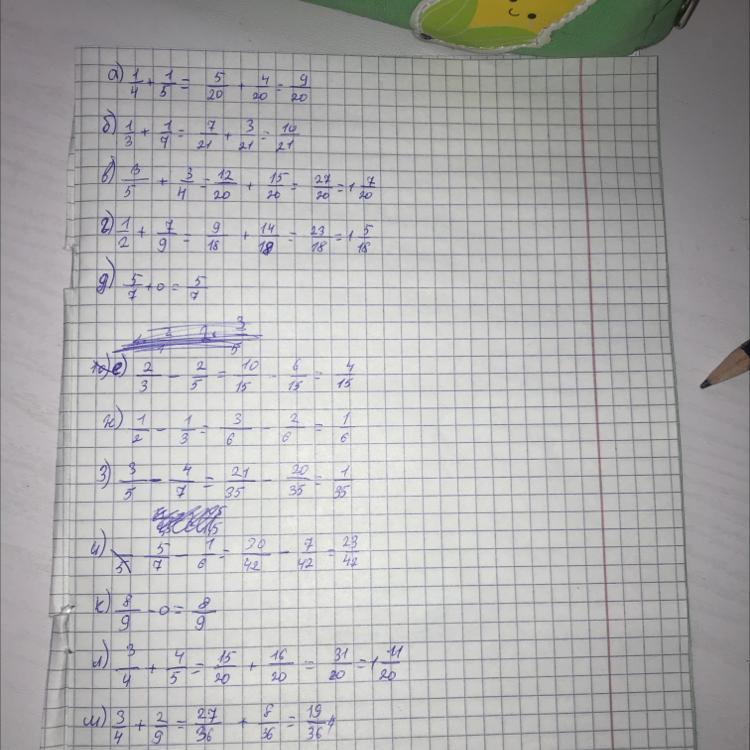 а) 1/4 + 1/5 = 5/20 + 4/20 = 9/20
б) 1/3 + 1/7 = 7/21 + 3/21 = 10/21
в) 3/5 + 3/4 = 12/20 + 15/20 = 27/20 = 1 7/20
г) 1/2 + 7/9 = 9/18 + 14/18 = 23/18 = 1 5/18
д) 5/7 + 0 = 5/7
е) 2/3 - 2/5 = 10/15 - 6/15 = 4/15
ж) 1/2 - 1/3 = 3/6 - 2/6 = 1/6
з) 3/5 - 4/7 = 21/35 - 20/35 = 1/35
и) 5/7 - 1/6 = 30/42 - 7/42 = 23/42
к) 8/9 - 0 = 8/9
л) 3/4 + 4/5 = 15/20 + 16/20 = 31/20 = 1 11/20
м) 3/4 + 2/9 = 27/36 + 8/36 = 19/36